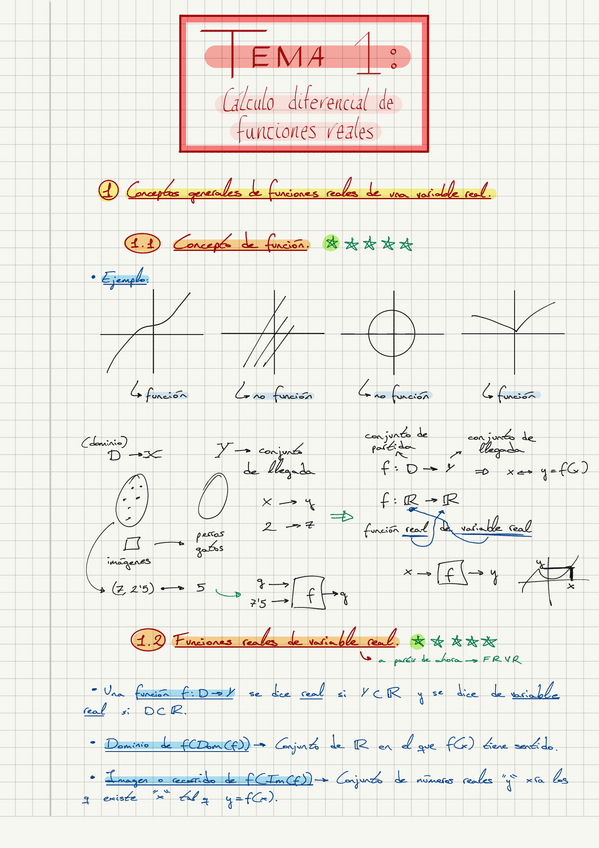 TEMA 1:
Cálculo diferencial de
funciones reales
1 Conceptos generales de funciones reales de una variable real.
1.1 Concepto de función.
• Ejemplo:
↳ función ↳ no función ↳ no función ↳ función
(dominio)
D → X
Y → conjunto
de llegada
imágenes
perros
gatos
x → y
2 → 7
(7, 2'5) → 5
g →
7'5 →
f
→ g
conjunto de
partida
conjunto de
llegada
f: D → Y ⇒ x ↔ y=f(x)
f: ℝ → ℝ
función real de variable real
x → f → y
y
x
1.2 Funciones reales de variable real.
↳ a partir de ahora → FRVR
• Una función f: D→Y se dice real si Y⊂ℝ y se dice de variable
real si D⊂ℝ.
• Dominio de f(Dom(f)) → Conjunto de ℝ en el que f(x) tiene sentido.
• Imagen o recorrido de f(Im(f)) → Conjunto de números reales "y" xra los
q existe "x" tal q y=f(x).